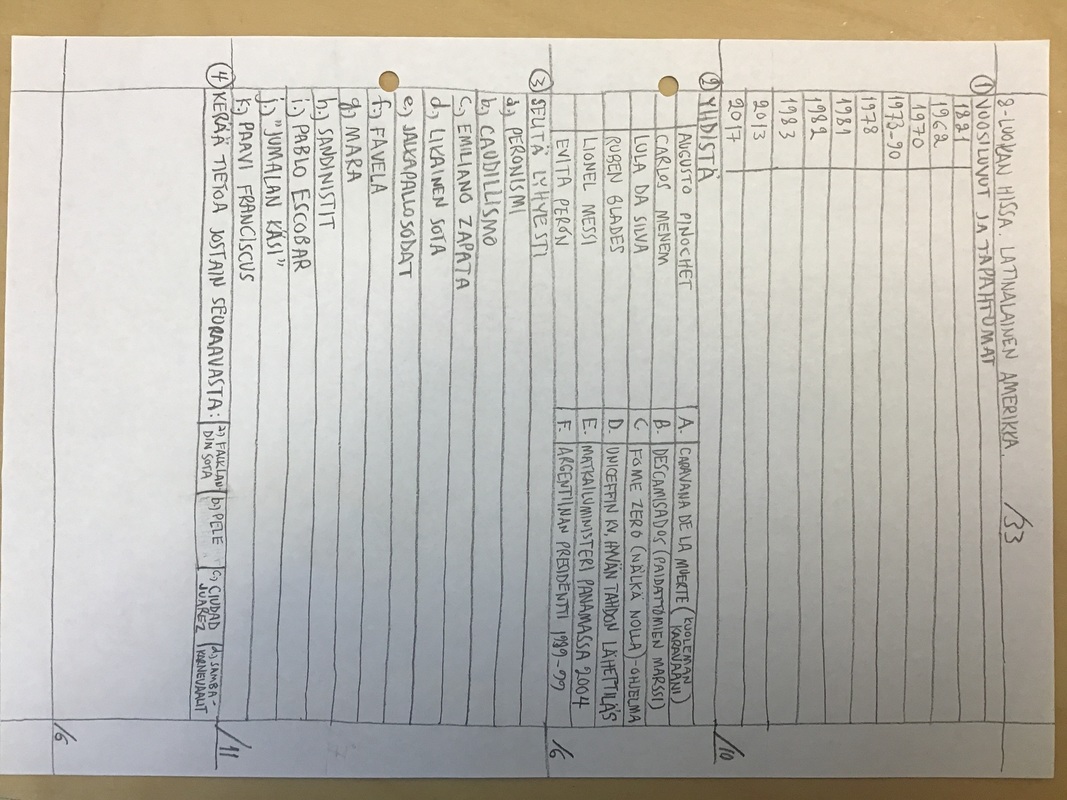 8-LUOKAN HISSA. LATINALAINEN AMERIKKA. /33
1 VUOSILUVUT JA TAPAHTUMAT
1821
1962
1970
1973-90
1978
1981
1982
1983
2013
2017
/10
2 YHDISTÄ
AUGUSTO PINOCHET A. CARAVANA DE LA MUERTE (KUOLEMAN KARAVAANI)
CARLOS MENEM B. DESCAMISADOS (PAIDATTOMIEN MARSSI)
LULA DA SILVA C FOME ZERO (NÄLKÄ NOLLA)-OHJELMA
RUBEN BLADES D. UNICEFFIN KV. HYVÄN TAHDON LÄHETTILÄS
LIONEL MESSI E. MATKAILUMINISTERI PANAMASSA 2004
EVITA PERÓN F. ARGENTIINAN PRESIDENTTI 1989-99
/6
3 SELITÄ LYHYESTI
a, PERONISMI
b, CAUDILLISMO
c, EMILIANO ZAPATA
d, LIKAINEN SOTA
e, JALKAPALLOSODAT
f, FAVELA
g, MARA
h, SANDINISTIT
i, PABLO ESCOBAR
j, "JUMALAN KÄSI"
k, PAAVI FRANCISCUS
/11
4 KERÄÄ TIETOA JOSTAIN SEURAAVASTA: a, FALKLAN-DIN SOTA b, PELE c, CIUDAD JUAREZ d, SAMBA-KARNEVAALIT
/6